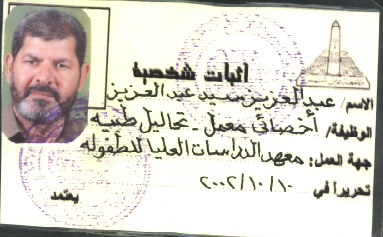 اثبات شخصية
الاسم/ عبد العزيز سيد عبد العزيز
الوظيفة/ أخصائى معمل - تحاليل طبيه
جهة العمل: معهد الدراسات العليا للطفوله
تحريراً في ٢٠٠٢/١٠/١٠
يعتمد